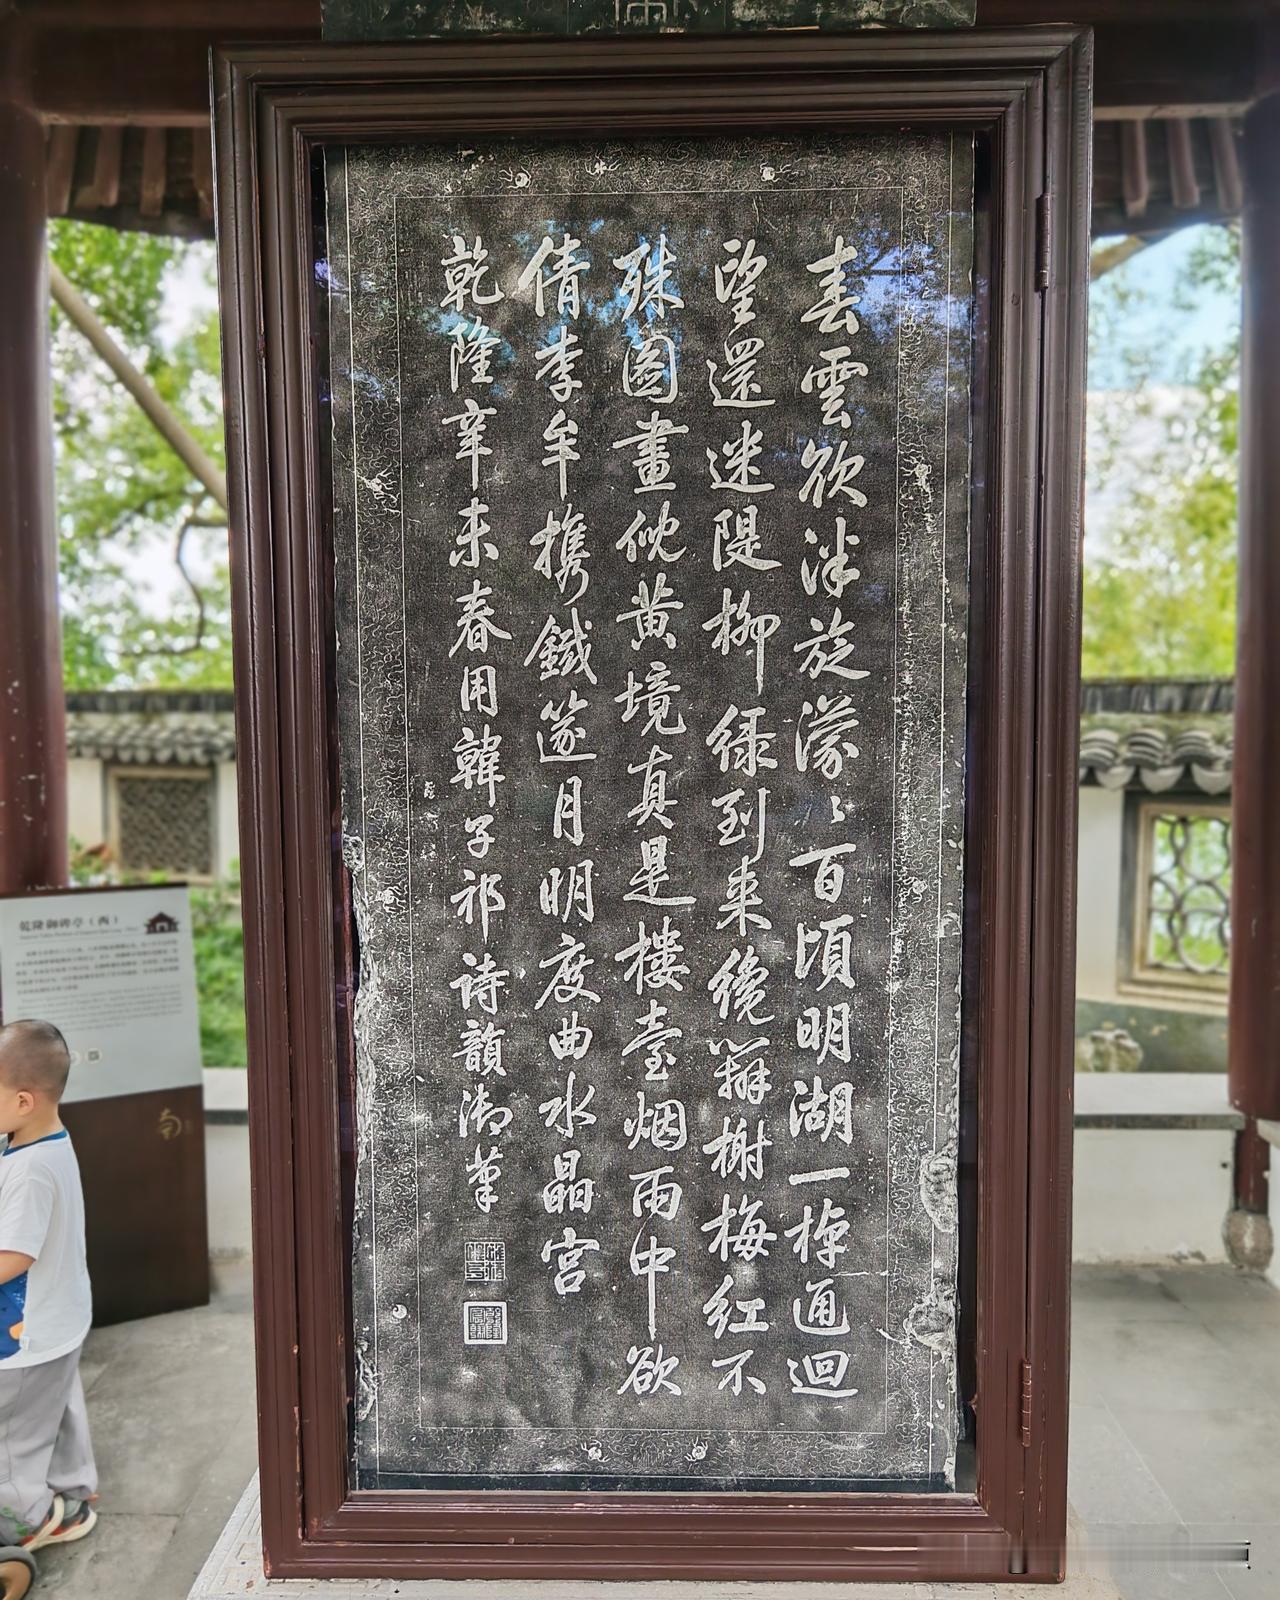 春雲欲泮旋濛〻百頃明湖一棹通迴
望還迷隄柳綠到來纔辨榭梅紅不
殊圖畫倪黃境真是樓臺烟雨中欲
倩李牟攜鐵篴月明度曲水晶宮
乾隆辛未春用韓子祁詩韻御筆
乾隆御碑亭（西）
南